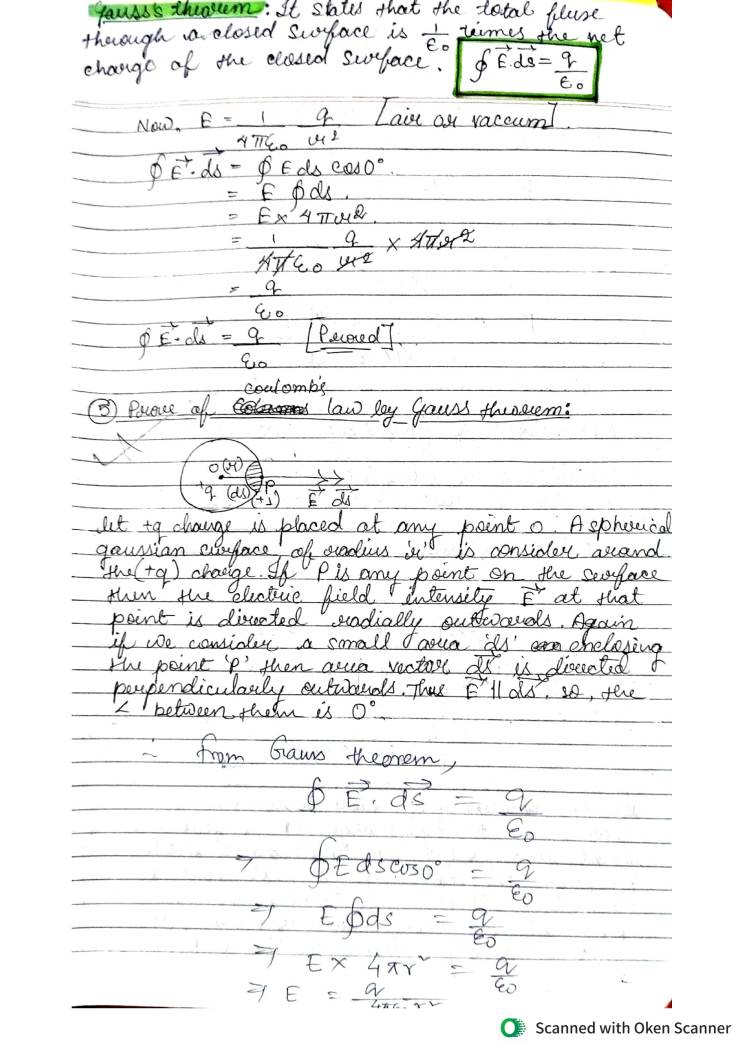 Gauss's theorem: It states that the total fluse
through a closed surface is 1/ε₀ times the net
charge of the closed surface. ∮E⃗.ds⃗ = q/ε₀
Now, E = 1/4πε₀ q/r² [air or vaccum].
∮E⃗.ds⃗ = ∮E ds cos0°.
= E ∮ds.
= E × 4πr².
= 1/4πε₀ q/r² × 4πr²
= q/ε₀
∮E⃗.ds⃗ = q/ε₀ [Proved].
coulomb's
⑤ Prove of law by Gauss theorem:
O (r)
+q (ds) P (+1) E⃗ ds⃗
let +q charge is placed at any point O. A spherical
gaussian surface of radius 'r' is consider around
the (+q) charge. If P is any point on the surface
then the electric field intensity E⃗ at that
point is directed radially outwards. Again
if we consider a small area 'ds' enclosing
the point 'P' then area vector ds⃗ is directed
perpendicularly outwards. Thus E⃗ || ds⃗. so, the
∠ between them is 0°.
∴ from Gauss theorem,
∮ E⃗. ds⃗ = q/ε₀
⇒ ∮E ds cos0° = q/ε₀
⇒ E ∮ds = q/ε₀
⇒ E × 4πr² = q/ε₀
⇒ E = q/4πε₀r²
Scanned with Oken Scanner